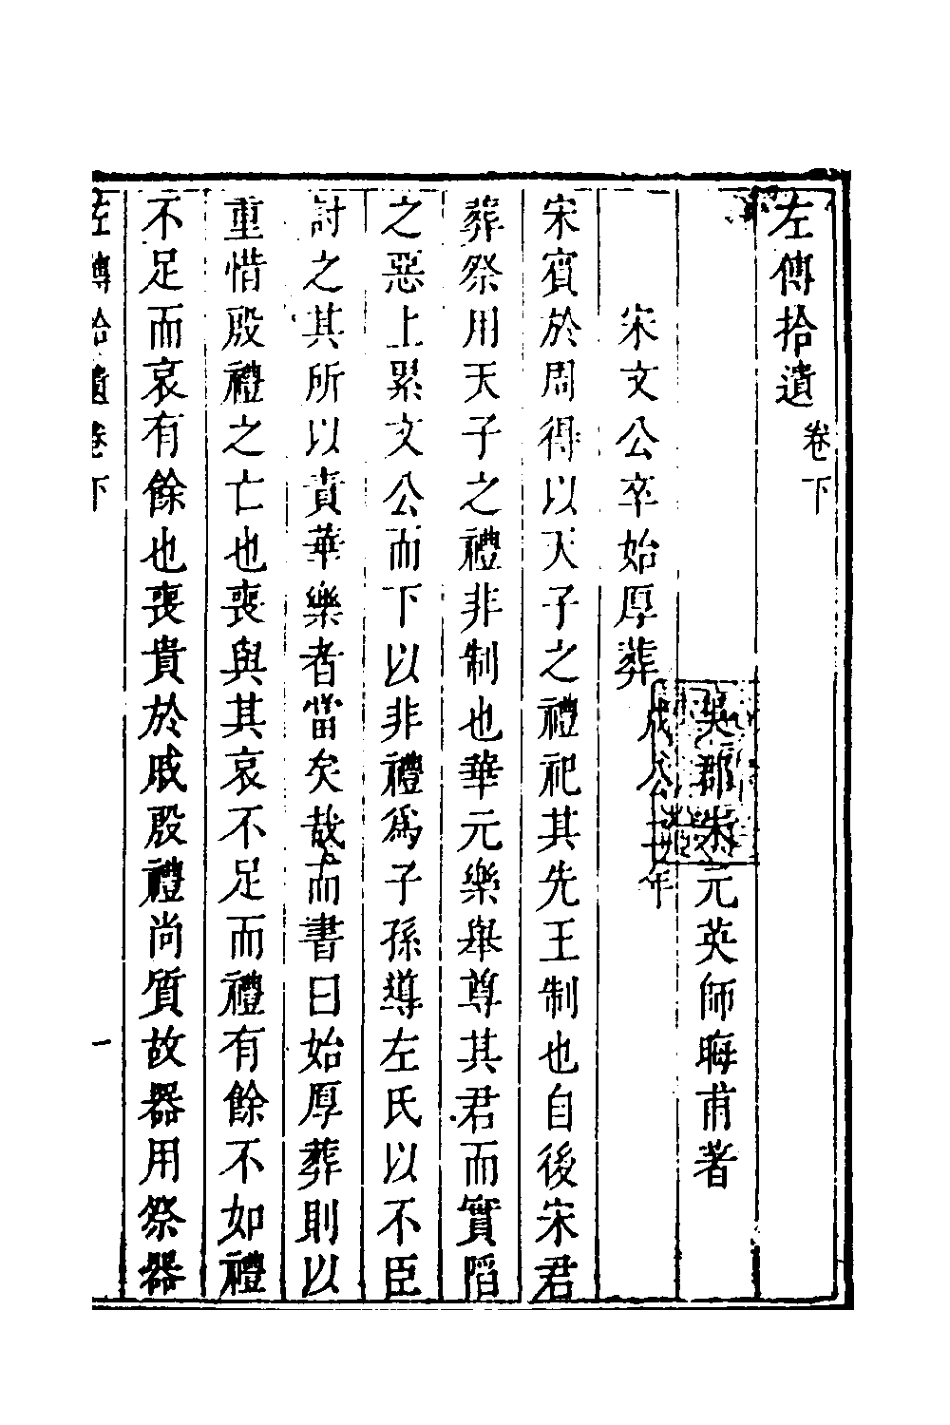 左傳拾遺卷下
吳郡朱元英師晦甫著
宋文公卒始厚葬成公二年
宋賓於周得以天子之禮祀其先王制也自後宋君
葬祭用天子之禮非制也華元樂舉尊其君而實陷
之惡上累文公而下以非禮為子孫導左氏以不臣
討之其所以責華樂者當矣哉而書曰始厚葬則以
重惜殷禮之亡也喪與其哀不足而禮有餘不如禮
不足而哀有餘也喪貴於戚殷禮尚質故器用祭器
左傳拾遺卷下 一